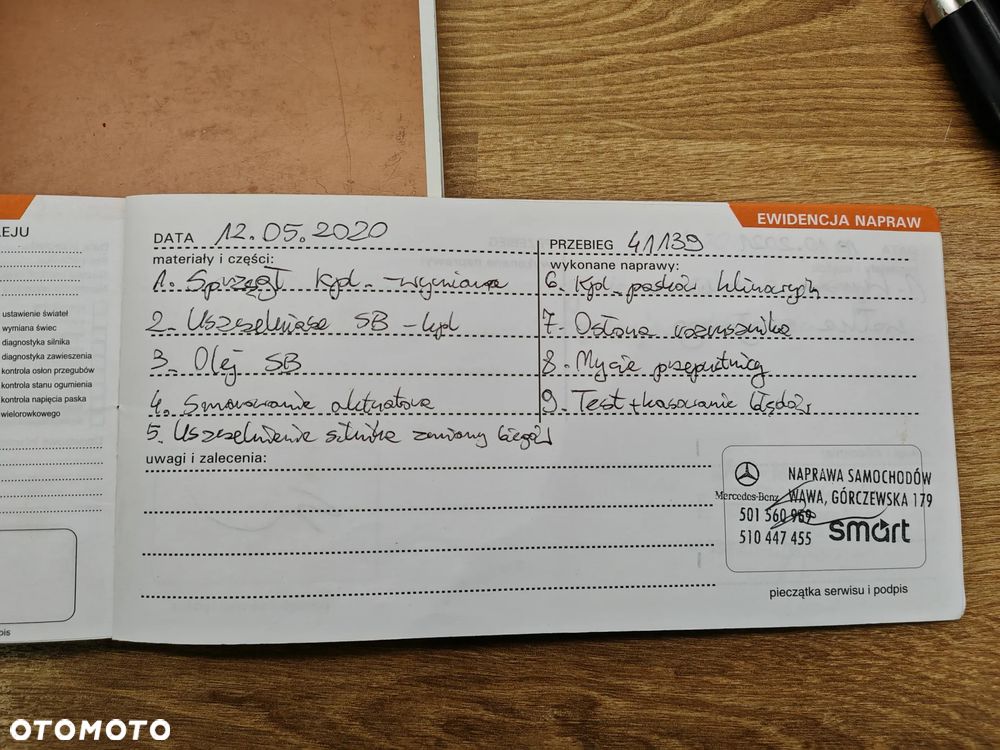 EJU
ustawienie świateł
wymiana świec
diagnostyka silnika
diagnostyka zawieszenia
kontrola osłon przegubów
kontrola stanu ogumienia
kontrola napięcia paska
wielorowkowego
pis
EWIDENCJA NAPRAW
DATA 12.05.2020
PRZEBIEG 41139
materiały i części:
wykonane naprawy:
1. Sprzęgł Kpl. - wymiana
2. Uszczelniacze SB - kpl
3. Olej SB
4. Smarowanie aktuatora
5. Uszczelnienie silnika zmiany biegów
6. Kpl. pasków klinowych
7. Osłona rozrusznika
8. Mycie przepustnicy
9. Test + kasowanie błędów
uwagi i zalecenia:
NAPRAWA SAMOCHODÓW
Mercedes-Benz WAWA, GÓRCZEWSKA 179
501 560 959
510 447 455
smart
pieczątka serwisu i podpis
OTOMOTO